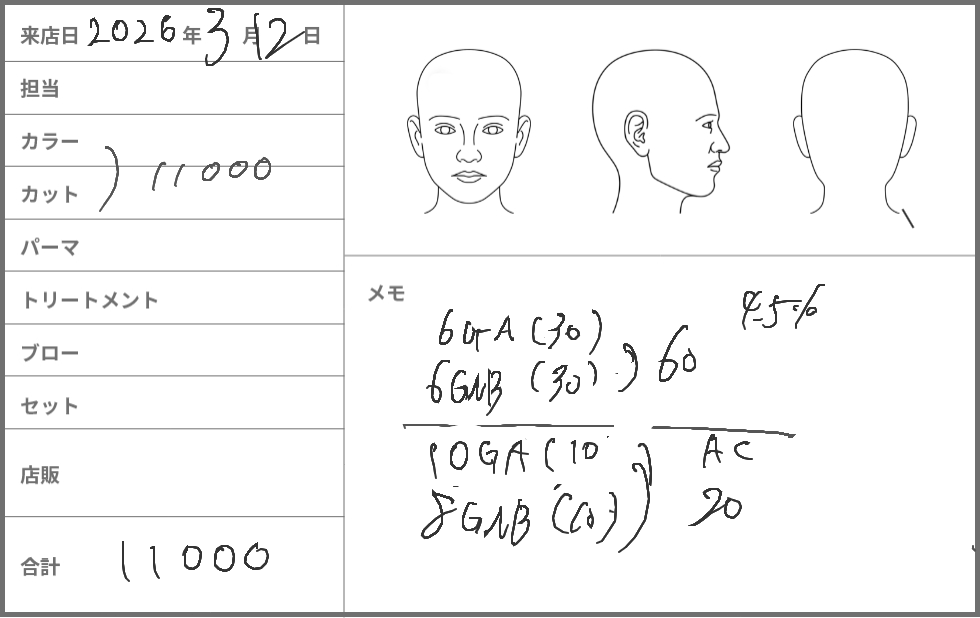 来店日 2026年3月12日
担当
カラー
カット
) 11000
パーマ
トリートメント
ブロー
セット
店販
合計 11000
メモ
4.5%
6GA (30)
6GNB (30) ) 60
10GA (10
8GNB (10) )
AC
20